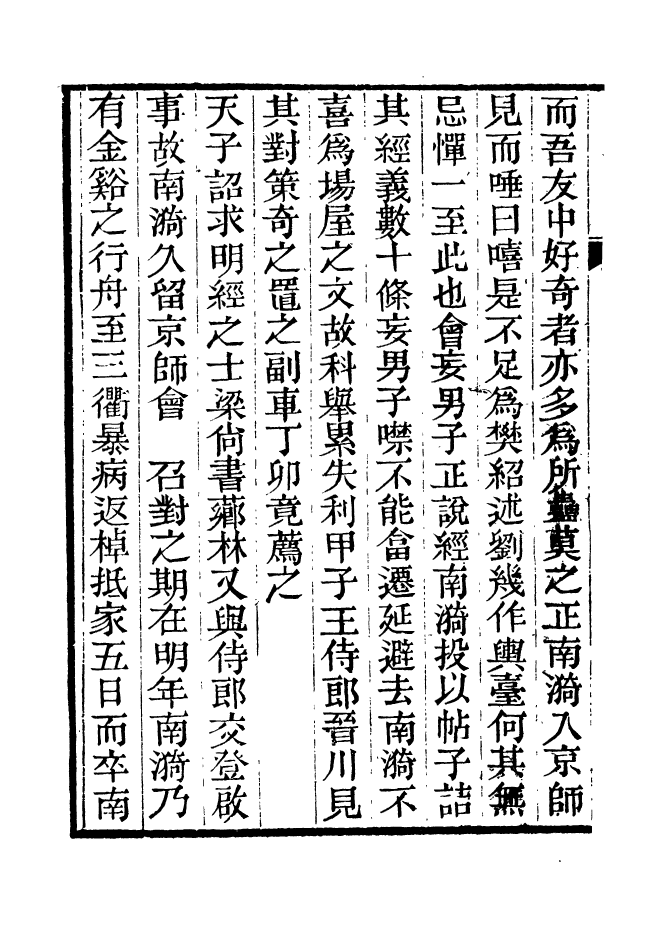 而吾友中好奇者亦多爲所蠱莫之正南漪入京師
見而唾曰嘻是不足爲樊紹述劉幾作輿臺何其無
忌憚一至此也會妄男子正說經南漪投以帖子詰
其經義數十條妄男子噤不能畣遷延避去南漪不
喜爲場屋之文故科舉累失利甲子王侍郎晉川見
其對策奇之置之副車丁卯竟薦之
天子詔求明經之士梁尙書薌林又與侍郎交登啟
事故南漪久留京師會　召對之期在明年南漪乃
有金谿之行舟至三衢暴病返棹抵家五日而卒南